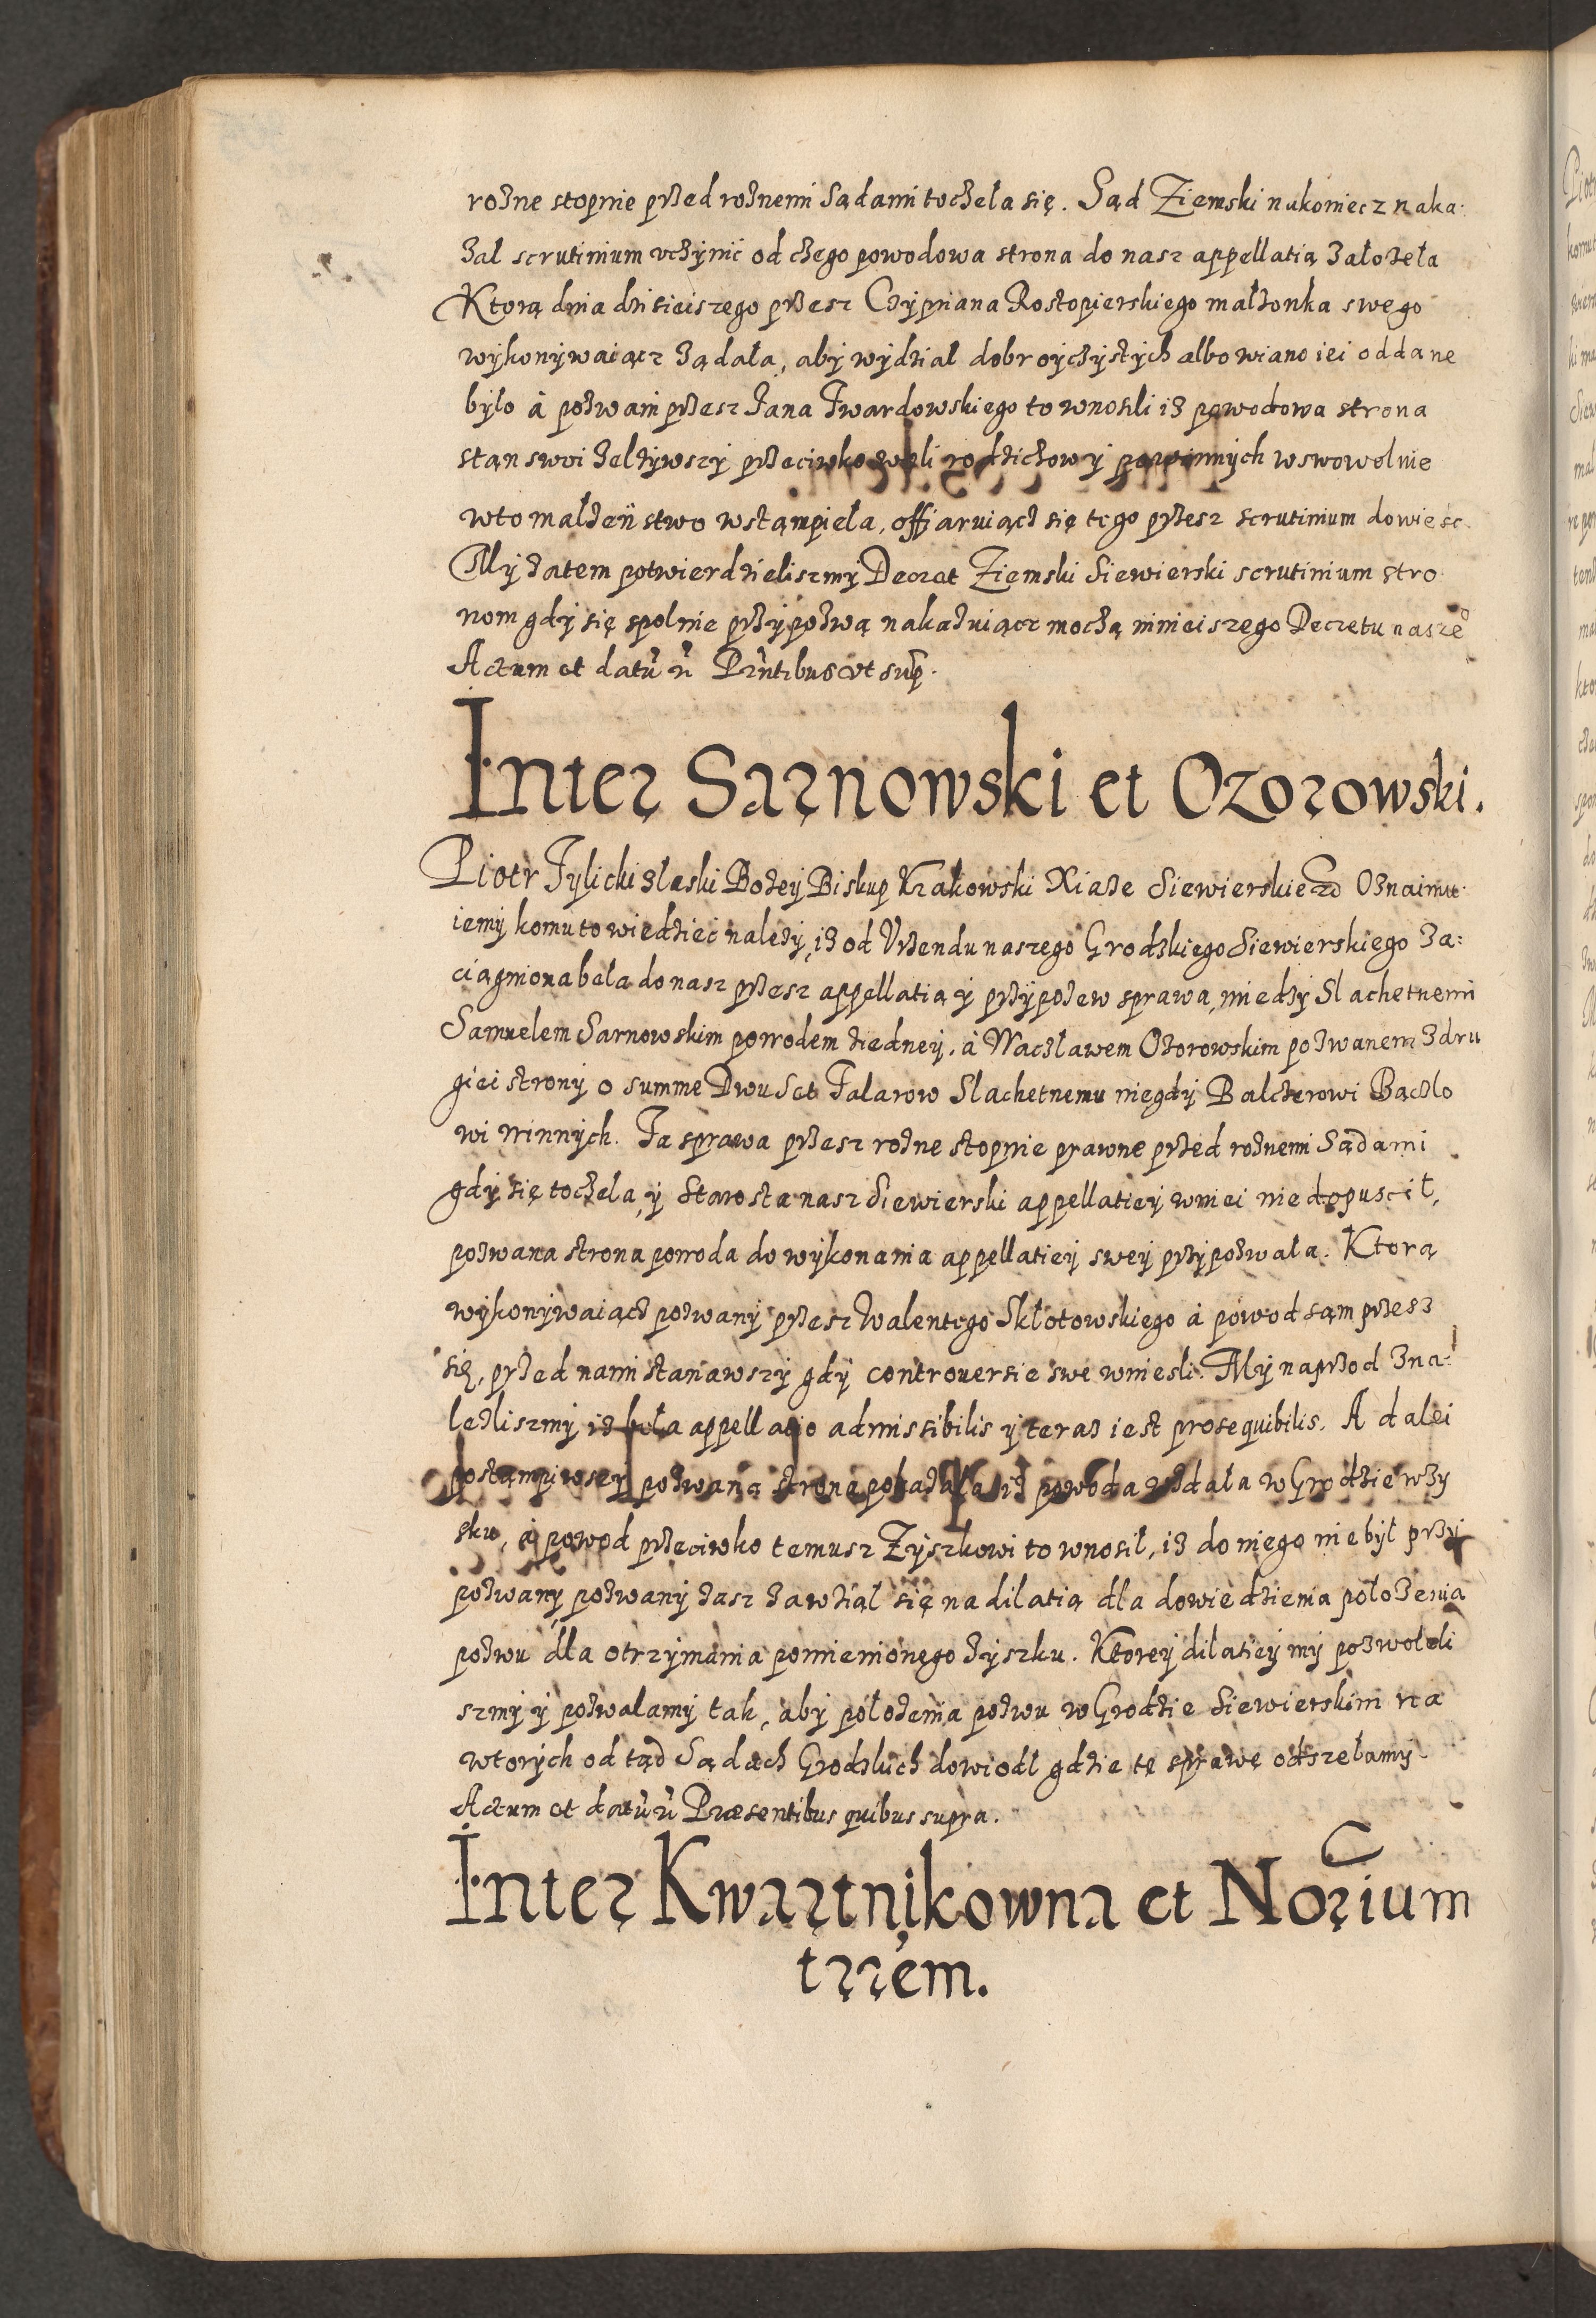 rozne stopnie przed roznemi Sądami toczeła się. Sąd Ziemski nakoniecz naka-
zał scrutinium vczynić od czego powodowa strona do nasz appellatią założeła
Którą dnia dzisieiszego przesz Czypriana Rostopierskiego małzonka swego
wykonywaiącz ządała, aby wydział dobr oyczystych albo wiano iei oddane
było à pozwani przesz Jana Twardowskiego to wnosili iz powodowa strona
stan swoi zelzywszy przeciwko woli rodzichow y powinnych w swowolnie
w to małzeństwo wstąmpieła, offiaruiącz się tego przesz scrutinium dowiesc
My zatem potwierdzieliszmy Decret Ziemski Siewierski scrutinium stro-
nom gdy się spolnie przypozwą nakazuiącz moczą ninieiszego Decretu nasze°
Actum et datu ū Prntibus vt sup.
Inter Sarnowski et Ozorowski.
Piotr Tylicki z łaski Bozey Biskup Krakowski Xiaze Siewierskie Oznaimu-
iemy komu to wiedzieć nalezy, iz od Vrzendu naszego Grodzkiego Siewierskiego za=
ciągniona beła do nasz przesz appellatią y przypozew sprawa, miedzy Slachetnemi
Samuelem Sarnowskim powodem ziedney, à Waczławem Ozorowskim pozwanem z dru
giei strony o summe Dwu Set Talarow Slachetnemu niegdy Balcerowi Bączlo
wi winnych. Ta sprawa przesz rozne stopnie prawne przed roznemi Sądami
gdy się toczeła, y Starosta nasz Siewierski appellatiey w niei nie dopuscił,
pozwana strona powoda do wykonania appellatiey swey przypozwała. Ktorą
wykonywaiącz pozwany przesz Walentego Skłotowskiego à powod sąm przesz
się, przed nami stanawszy gdy controuersie swe wniesli. My naprzod zna-
lezliszmy iz beła appellatio admissibilis y teraz iest prosequibilis. A dalei
postąmpiwszy pozwana strona pokazała iz powoda wzdała w Grodzie w zy
sku, à powod przeciwko temusz Zyszkowi to wnosił, iz do niego nie był przy
pozwany, pozwany zasz zawział się na dilatią dla dowiedzienia połozenia
pozwu dla otrzymania pomienionego zyszku. Ktorey dilatiey my pozwoleli
szmy y pozwalamy tak, aby połozenia pozwu w Grodzie Siewierskim na
wtorych od tąd Sądach Grodzkich dowiodł gdzie tę sprawę odszełamy
Actum et datu ū Præsentibus quibus supra.
Inter Kwartnikowna et Norium
trrem.